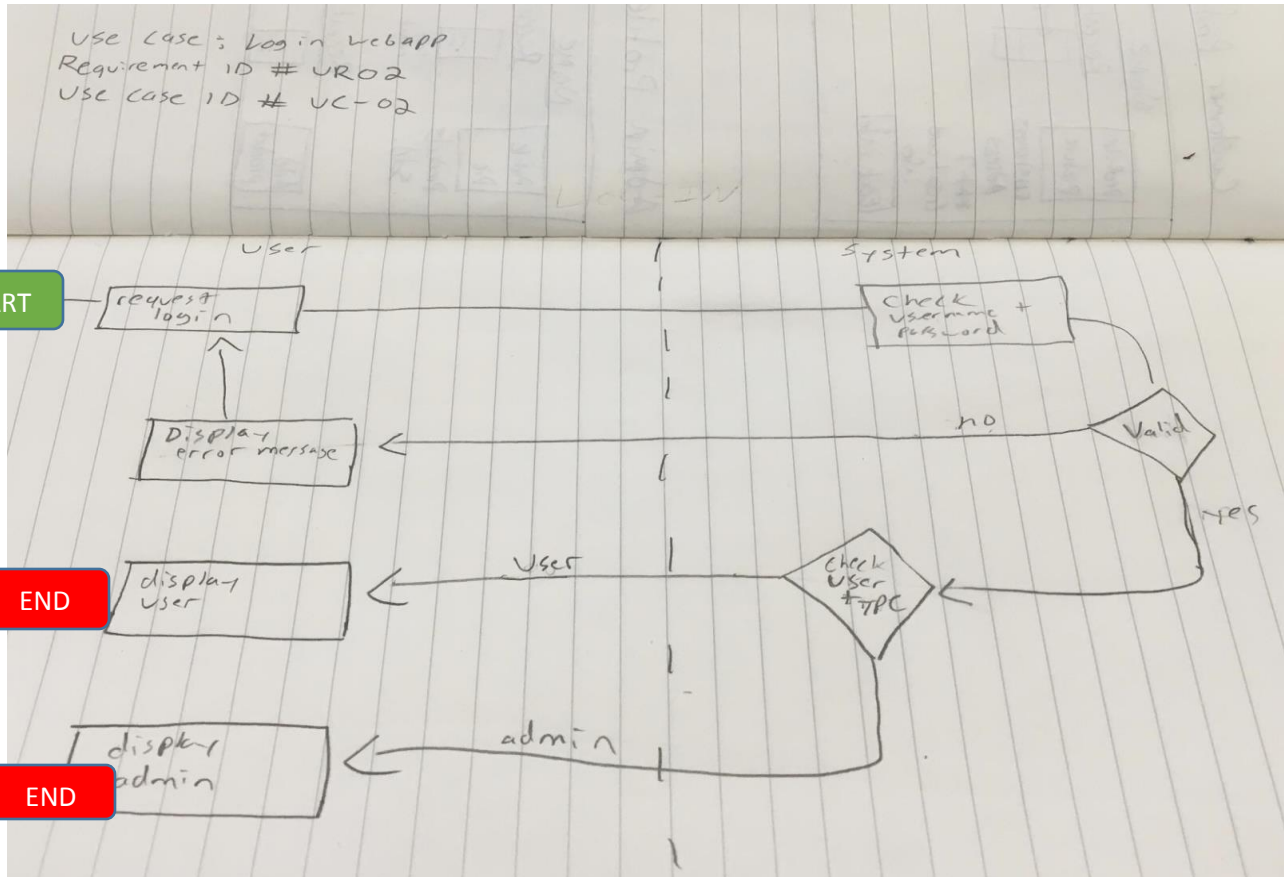 Use case: Login webapp
Requirement ID # UR02
Use case ID # UC-02
User
System
RT
request
login
Check
username +
password
Display
error message
no
Valid
yes
END
display
user
User
check
user
type
display
admin
admin
END